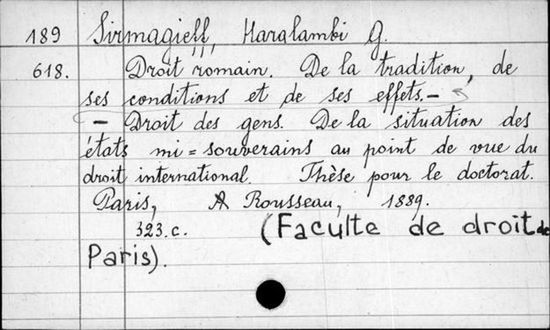 189 Sirmagieff, Haralambi G.
618. Droit romain. De la tradition, de
ses conditions et de ses effets.—
— Droit des gens. De la situation des
états mi=souverains au point de vue du
droit international. Thèse pour le doctorat.
Paris, A Rousseau, 1889.
323.c. (Faculte de droit de
Paris).